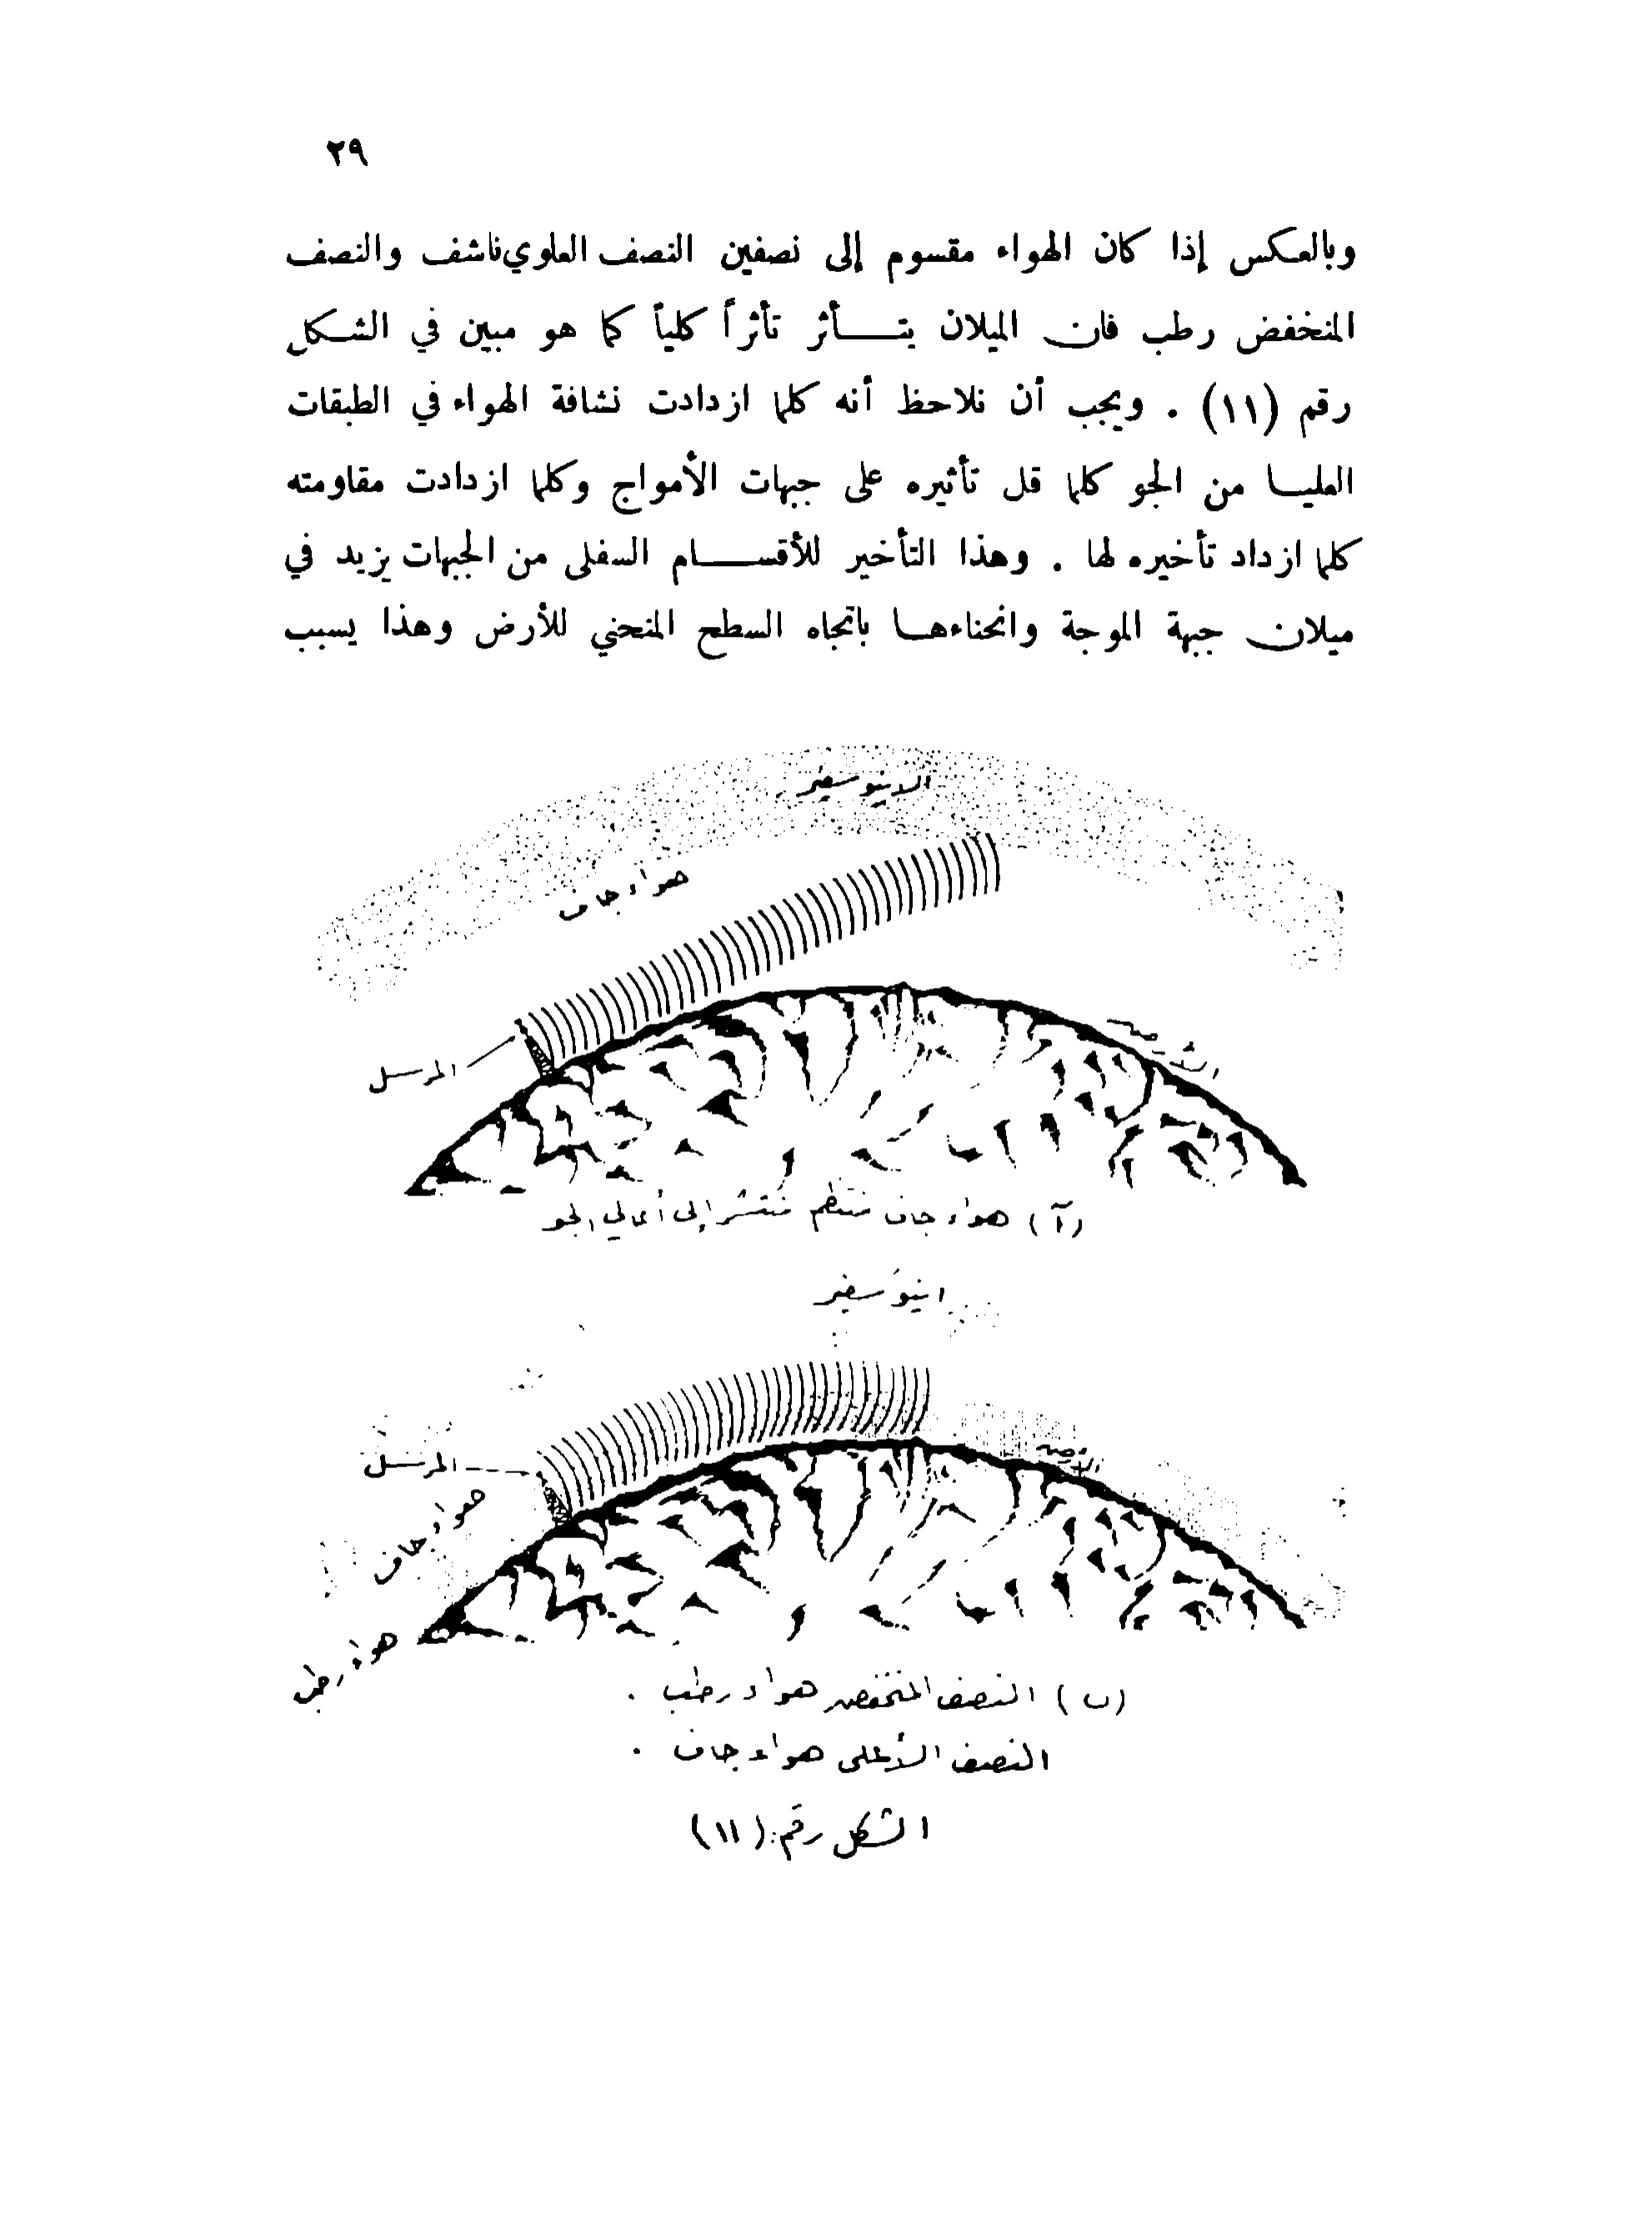 ٢٩
وبالعكس إذا كان الهواء مقسوم إلى نصفين النصف العلوي ناشف والنصف
المنخفض رطب فان الميلان يتأثر تأثراً كلياً كما هو مبين في الشكل
رقم (١١) . ويجب أن نلاحظ أنه كلما ازدادت نشافة الهواء في الطبقات
العليا من الجو كلما قل تأثيره على جبهات الأمواج وكلما ازدادت مقاومته
كلما ازداد تأخيره لها . وهذا التأخير للأقسام السفلى من الجبهات يزيد في
ميلان جبهة الموجة وانحناءها باتجاه السطح المنحني للأرض وهذا يسبب
الاينوسفير
هواء جاف
المرسل
(آ) هواء جاف منتظم منتشر إلى أعالي الجو
اينوسفير
المرسل
الأرض
هواء جاف
هواء رطب
(ب) النصف المنخفض هواء رطب .
النصف الأعلى هواء جاف .
الشكل رقم : (١١)